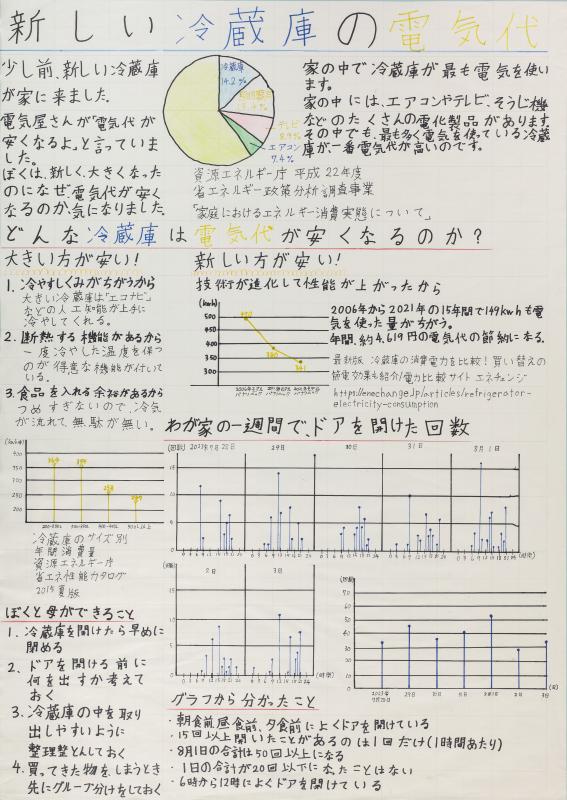 新しい冷蔵庫の電気代
少し前、新しい冷蔵庫
が家に来ました。
電気屋さんが「電気代が
安くなるよ」と言っていま
した。
ぼくは、新しく、大きくなった
のになぜ電気代が安く
なるのか、気になりました。
冷蔵庫
14.2%
照明器具
13.4%
テレビ
8.9%
エアコン
7.4%
家の中で冷蔵庫が最も電気を使い
ます。
家の中には、エアコンやテレビ、そうじ機
などのたくさんの電化製品があります。
その中でも、最も多く電気を使っている冷蔵
庫が一番電気代が高いのです。
資源エネルギー庁 平成22年度
省エネルギー政策分析調査事業
「家庭におけるエネルギー消費実態について」
どんな冷蔵庫は電気代が安くなるのか?
大きい方が安い!
1. 冷やすしくみがちがうから
大きい冷蔵庫は「エコナビ」
などの人工知能が上手に
冷やしてくれる。
2. 断熱する機能があるから
一度冷やした温度を保つ
のが得意な機能が付いて
いる。
3. 食品を入れる余裕があるから
つめすぎないので、冷気
が流れて、無駄が無い。
新しい方が安い!
技術が進化して性能が上がったから
(kwh)
500
450
400
350
300
490
380
341
2006年から2021年の15年間で149kwhも電
気を使った量がちがう。
年間、約4,619円の電気代の節約になる。
最新版 冷蔵庫の消費電力を比較!買い替えの
節電効果も紹介/電力比較サイト エネチェンジ
https://enechange.jp/articles/refrigerator-
electricity-consumption
わが家の一週間で、ドアを開けた回数
冷蔵庫のサイズ別
年間消費量
資源エネルギー庁
省エネ性能カタログ
2019夏版
(回数)
29日
30日
31日
8月1日
(時間)
2日
3日
(時間)
(回数)
(日)
ぼくと母ができること
1. 冷蔵庫を開けたら早めに
閉める
2. ドアを開ける前に
何を出すか考えて
おく
3. 冷蔵庫の中を取り
出しやすいように
整理整とんしておく
4. 買ってきた物を、しまうとき
先にグループ分けをしておく
グラフから分かったこと
・朝食前、昼食前、夕食前によくドアを開けている
・15回以上開いたことがあるのは1回だけ(1時間あたり)
・8月1日の合計は50回以上になる
・1日の合計が20回以下になったことはない
・6時から12時によくドアを開けている